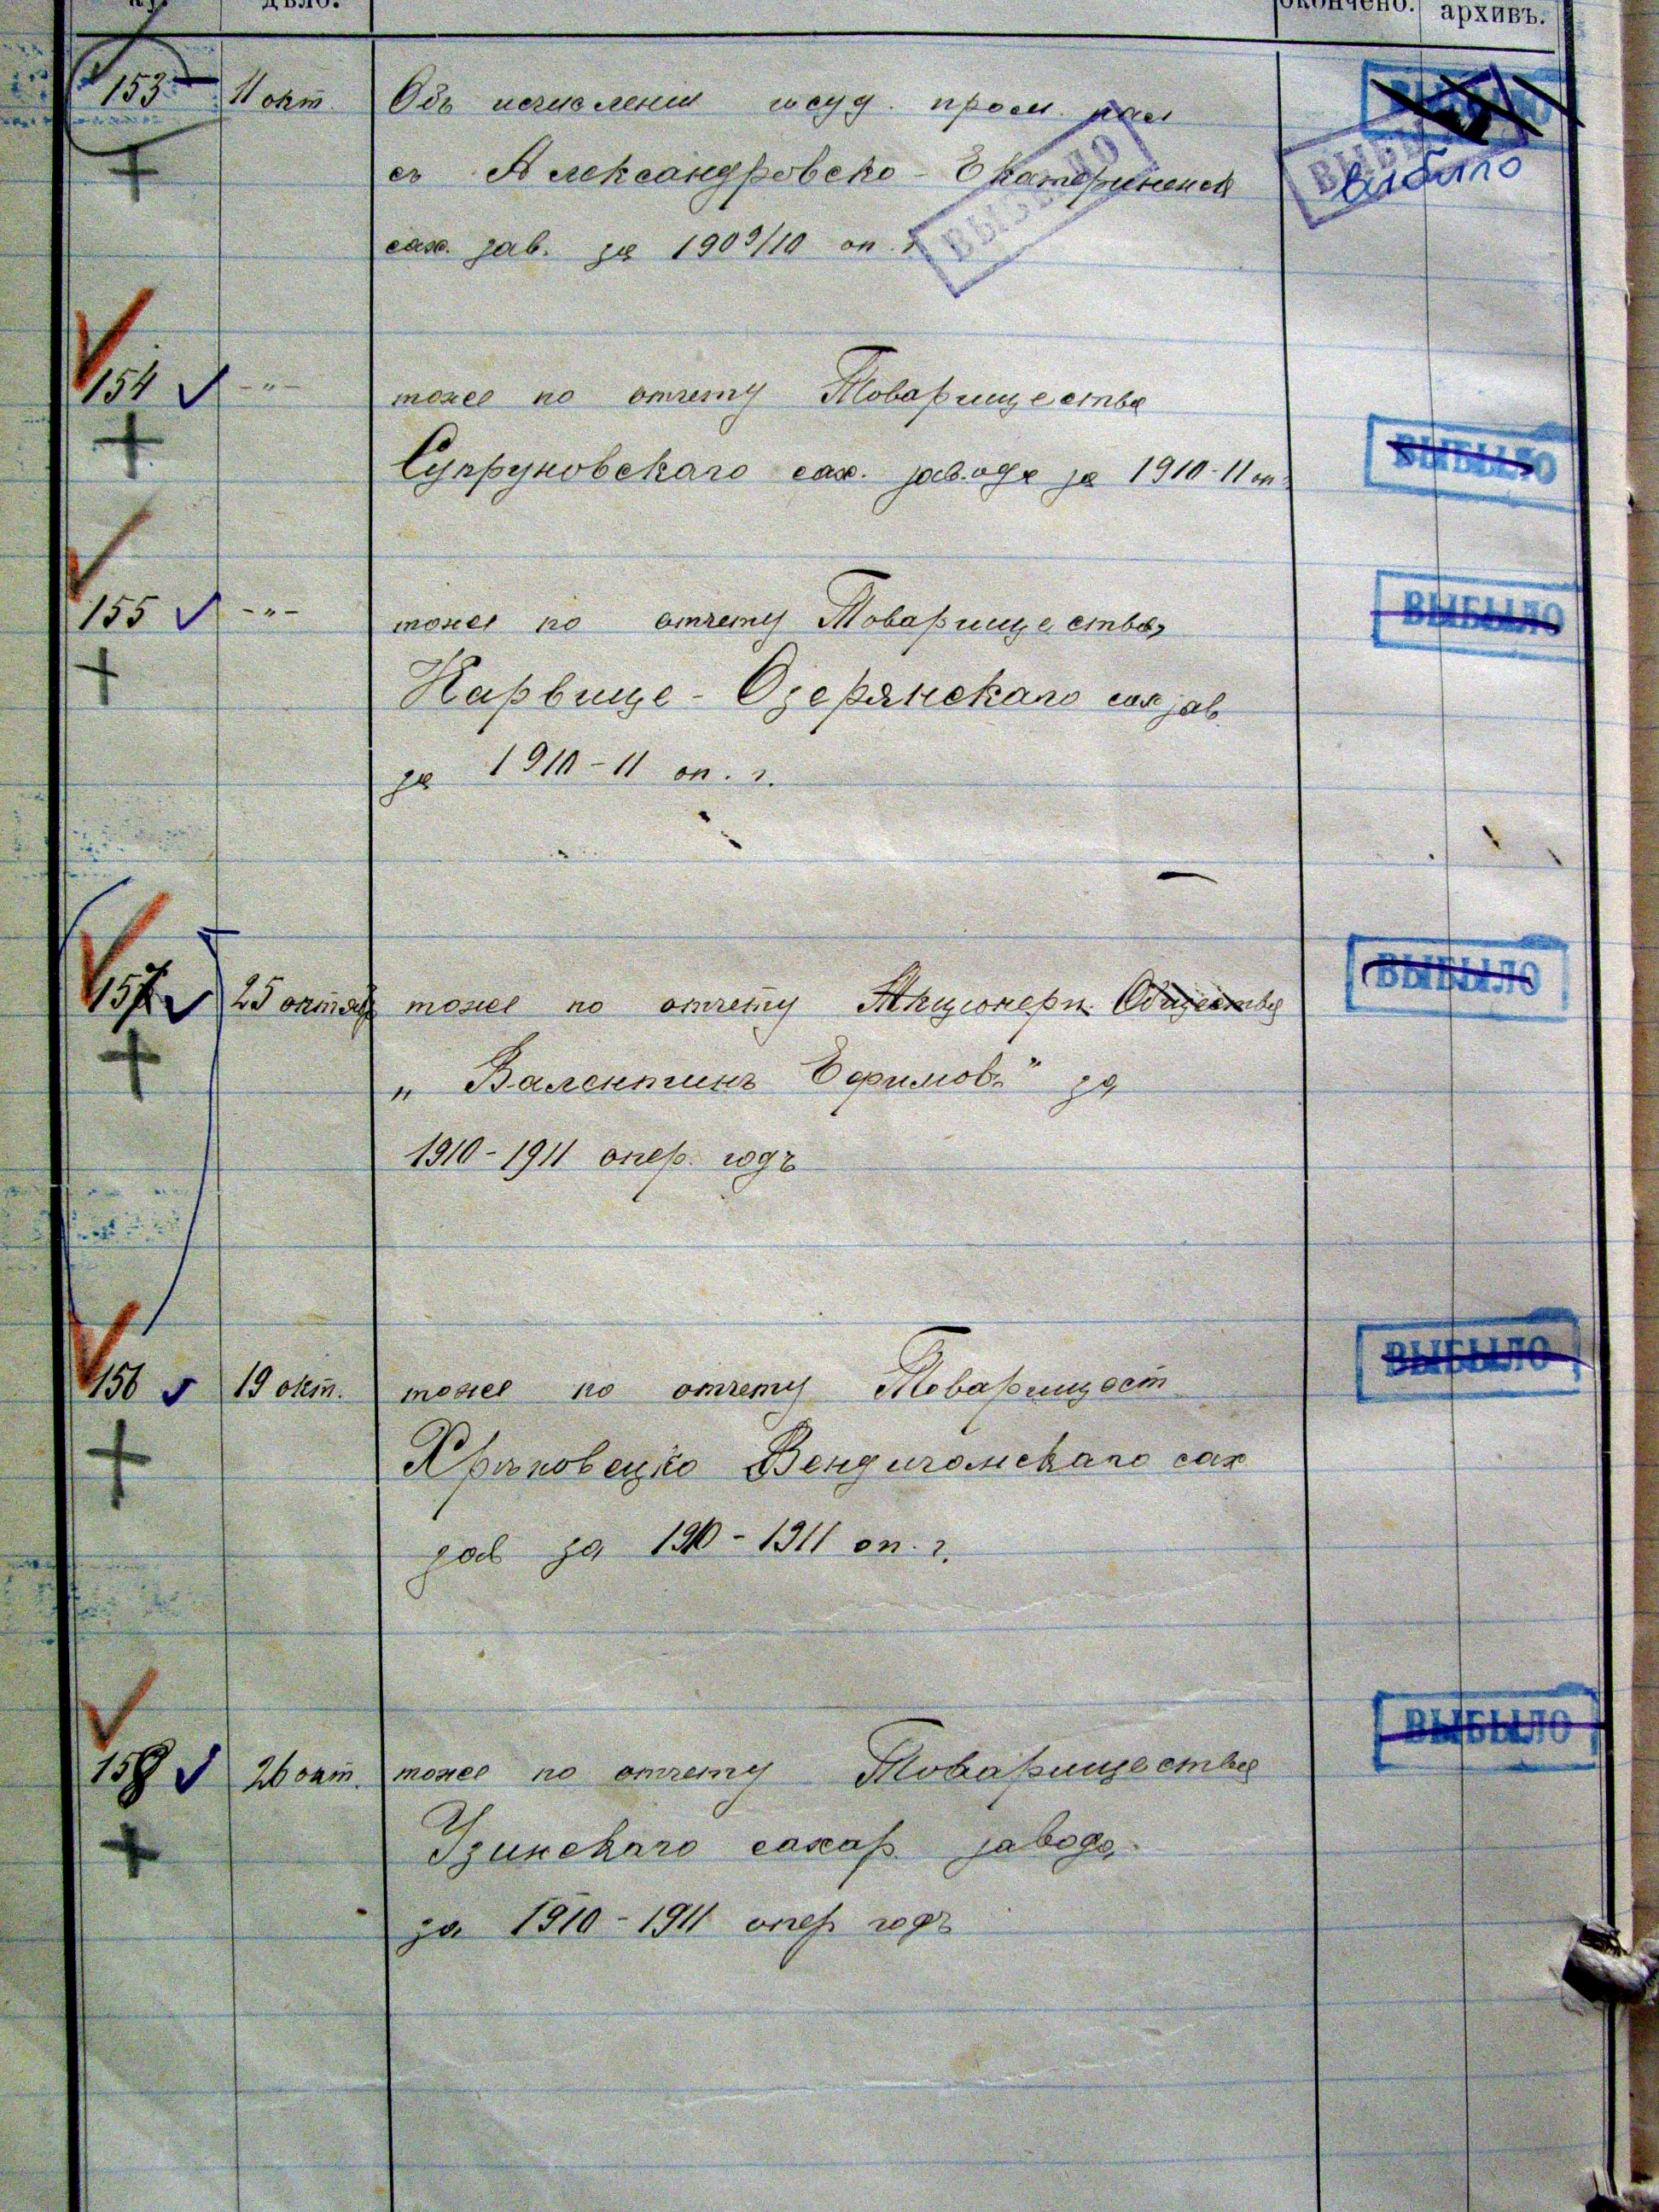 дѣло.
окончено.
архивъ.
153 11 окт. Объ исчислении госуд. пром. нал
съ Александровско - Екатерининск
сах. зав. за 1909/10 оп. г.
ВЫБЫЛО
ВЫБЫЛО
вибило
154 -"- тоже по отчету Товарищества
Супруновскаго сах. завода за 1910-11 оп.
ВЫБЫЛО
155 -"- тоже по отчету Товарищества
Карвице - Озерянскаго сах зав.
за 1910-11 оп. г.
ВЫБЫЛО
157 25 октяб тоже по отчету Акционерн. Общества
„ Валентинъ Ефимовъ" за
1910-1911 опер. годъ
ВЫБЫЛО
156 19 окт. тоже по отчету Товарищест
Вендичанскаго сах
зав за 1910-1911 оп. г.
ВЫБЫЛО
158 26 окт. тоже по отчету Товарищества
Узинскаго сахар. завода
за 1910-1911 опер годъ
ВЫБЫЛО